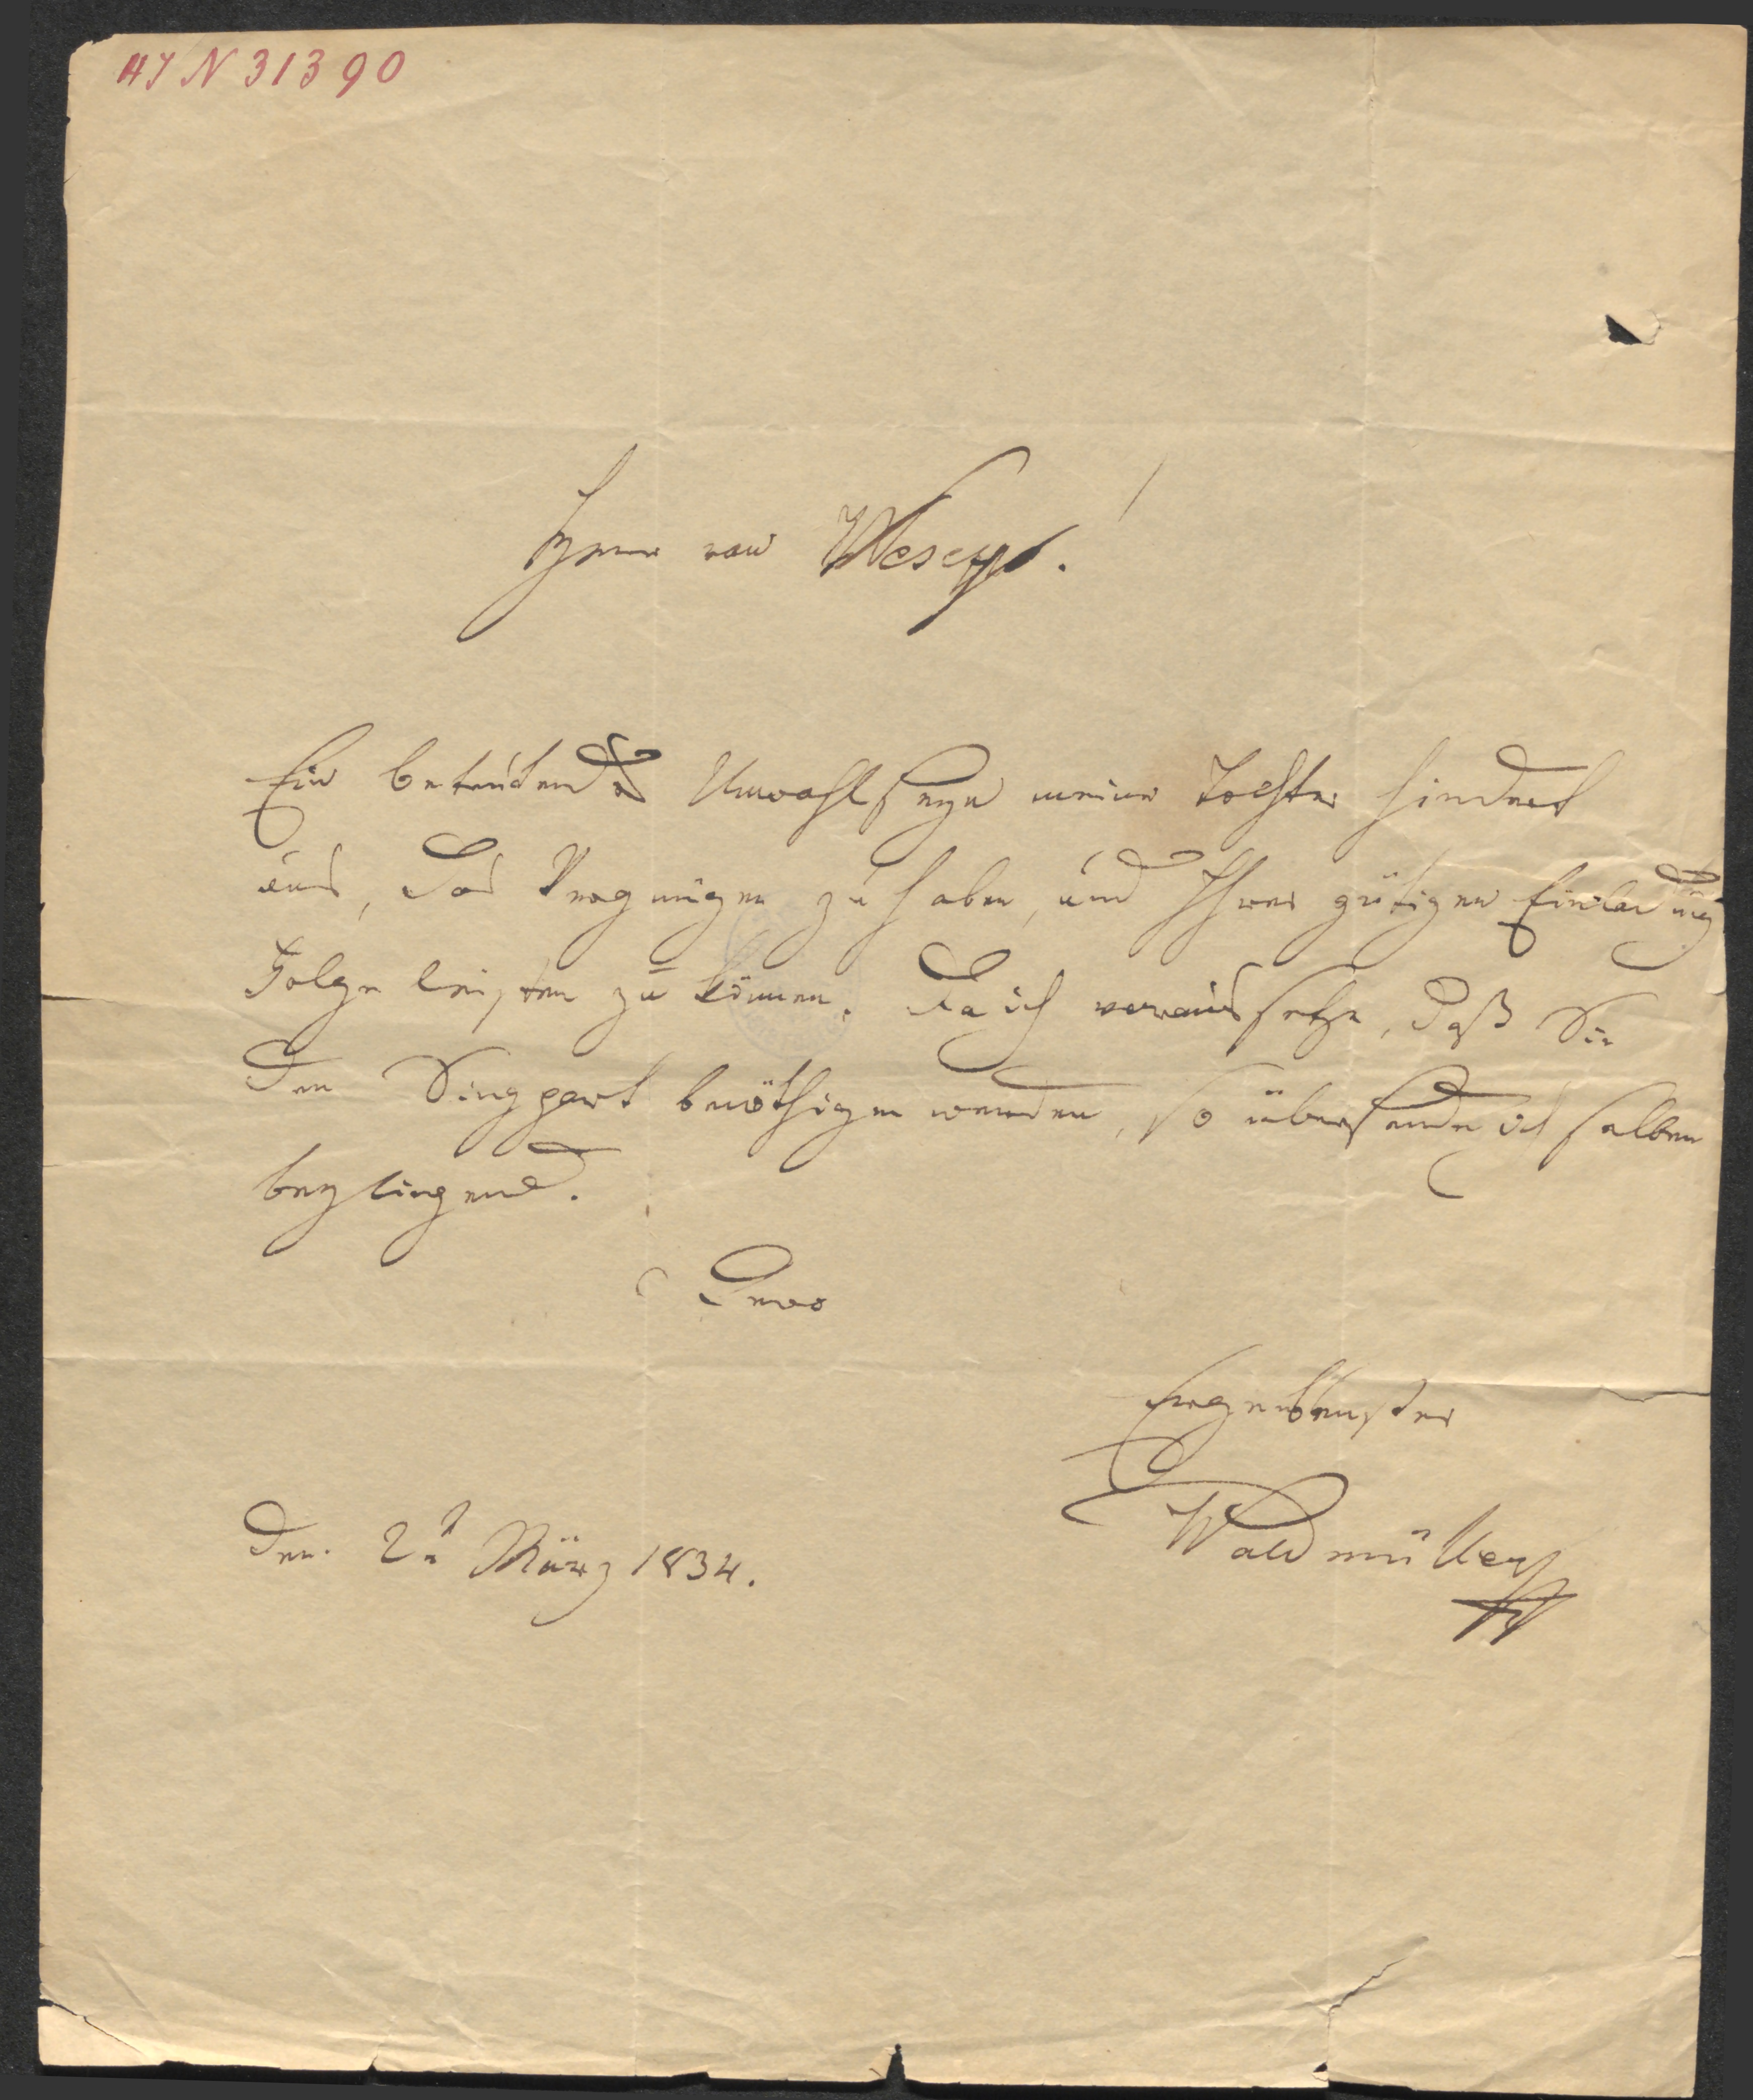 HJN 31390
Herr von
Ein bedeutendes Unwohlseyn meiner Tochter hindert
uns, das Vergnügen zu haben, und Ihrer gütigen Einladung
Folge leisten zu können. Da ich voraussetze, daß Sie
den Singpart benöthigen werden, so übersende ich selben
beyliegend.
Dero
Ergebenster
Waldmüller
den. 2t März 1834.